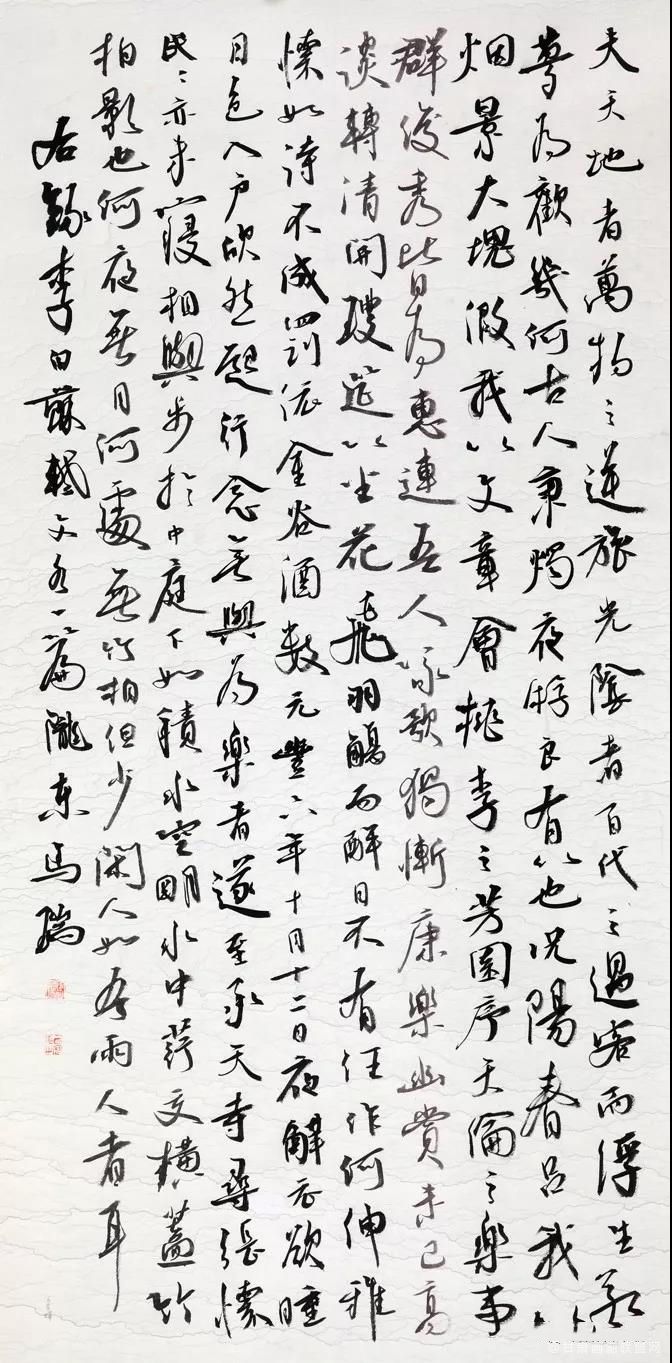 夫天地者萬物之逆旅光陰者百代之過客而浮生若
夢為歡幾何古人秉燭夜游良有以也况陽春召我以
烟景大塊假我以文章會桃李之芳園序天倫之樂事
群俊秀皆為惠連吾人詠歌獨慚康樂幽賞未已高
談轉清開瓊筵以坐花飛羽觴而醉月不有佳作何伸雅
懷如詩不成罰依金谷酒數元豐六年十月十二日夜解衣欲睡
月色入户欣然起行念無與為樂者遂至承天寺尋張懷
民〻亦未寢相與步於中庭下如積水空明水中荇交橫蓋竹
柏影也何夜無月何處無竹柏但少閑人如吾兩人者耳
右錄李白蘇軾文各一篇隴東馬瑞